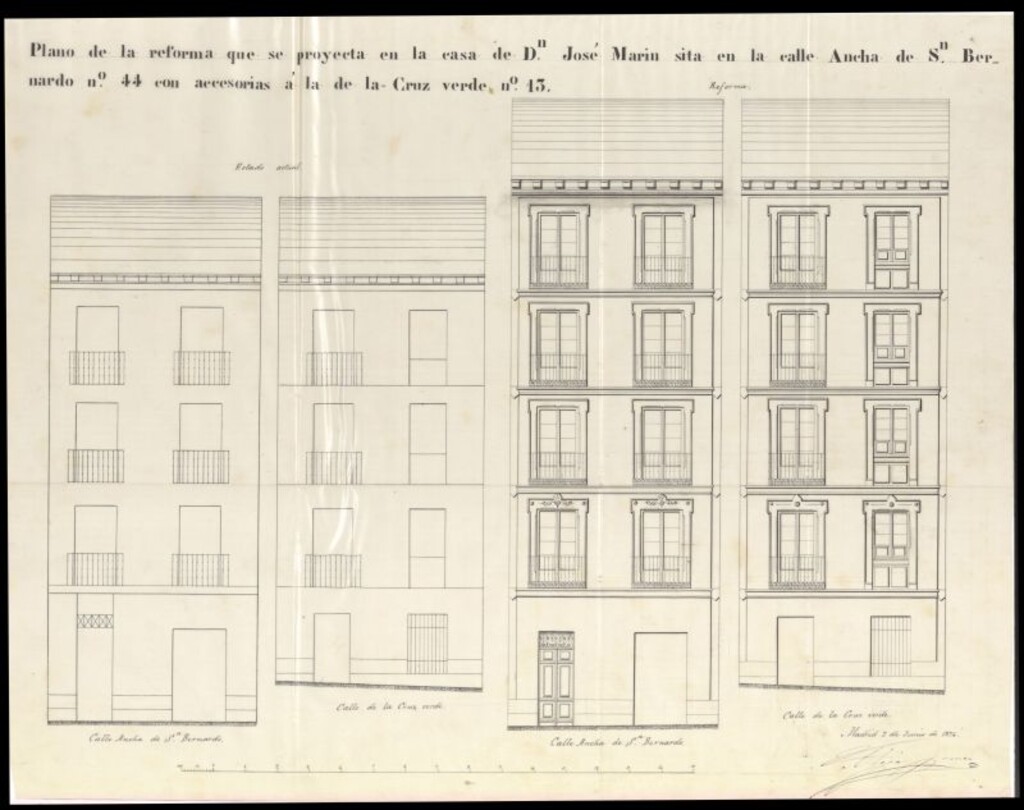 Plano de la reforma que se proyecta en la casa de Dⁿ José Marin sita en la calle Ancha de Sⁿ. Ber-
nardo nº. 44 con accesorias á la de la Cruz verde, nº. 13.
Estado actual
Reforma.
Calle Ancha de Sⁿ Bernardo
Calle de la Cruz verde
Calle Ancha de Sⁿ Bernardo
Calle de la Cruz verde
Madrid 2 de Junio de